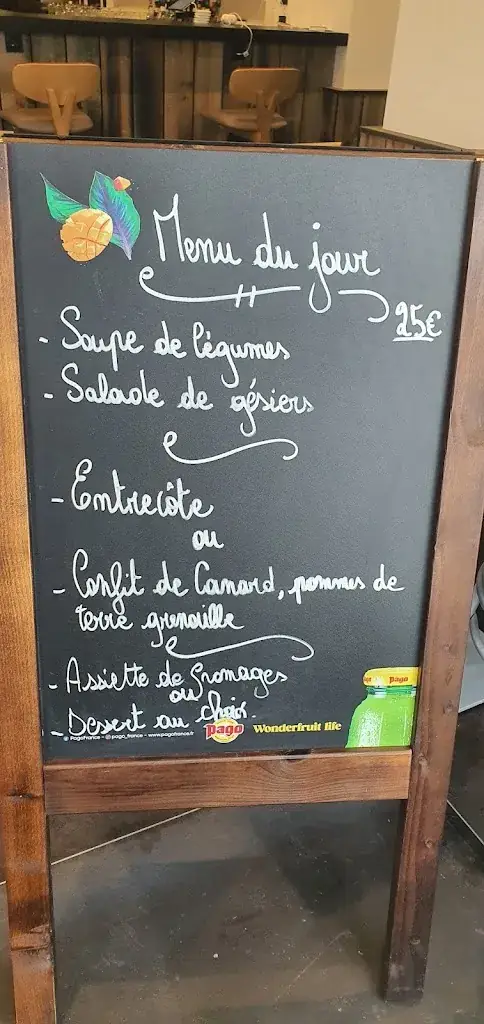 Menu du jour
25€
- Soupe de légumes
- Salade de gésiers
- Entrecôte
ou
- Confit de Canard, pommes de
terre grenaille
- Assiette de fromages
ou
- Dessert au choix.
PagoFrance - pago_france - www.pagofrance.fr
Pago
Wonderfruit life
pago